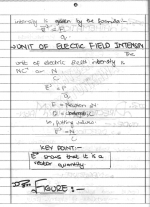 intensity is given by the formula:-
E = F
q
→ UNIT OF ELECTIC FIELD INTENSITY
The
unit of electric field intensity is
NC⁻¹ or N
C
E = F
q
F = Newton N
Q = C
So, putting values
E = N
C
KEY POINT:-
E shows that it is a
vector quantity.
FIGURE:-